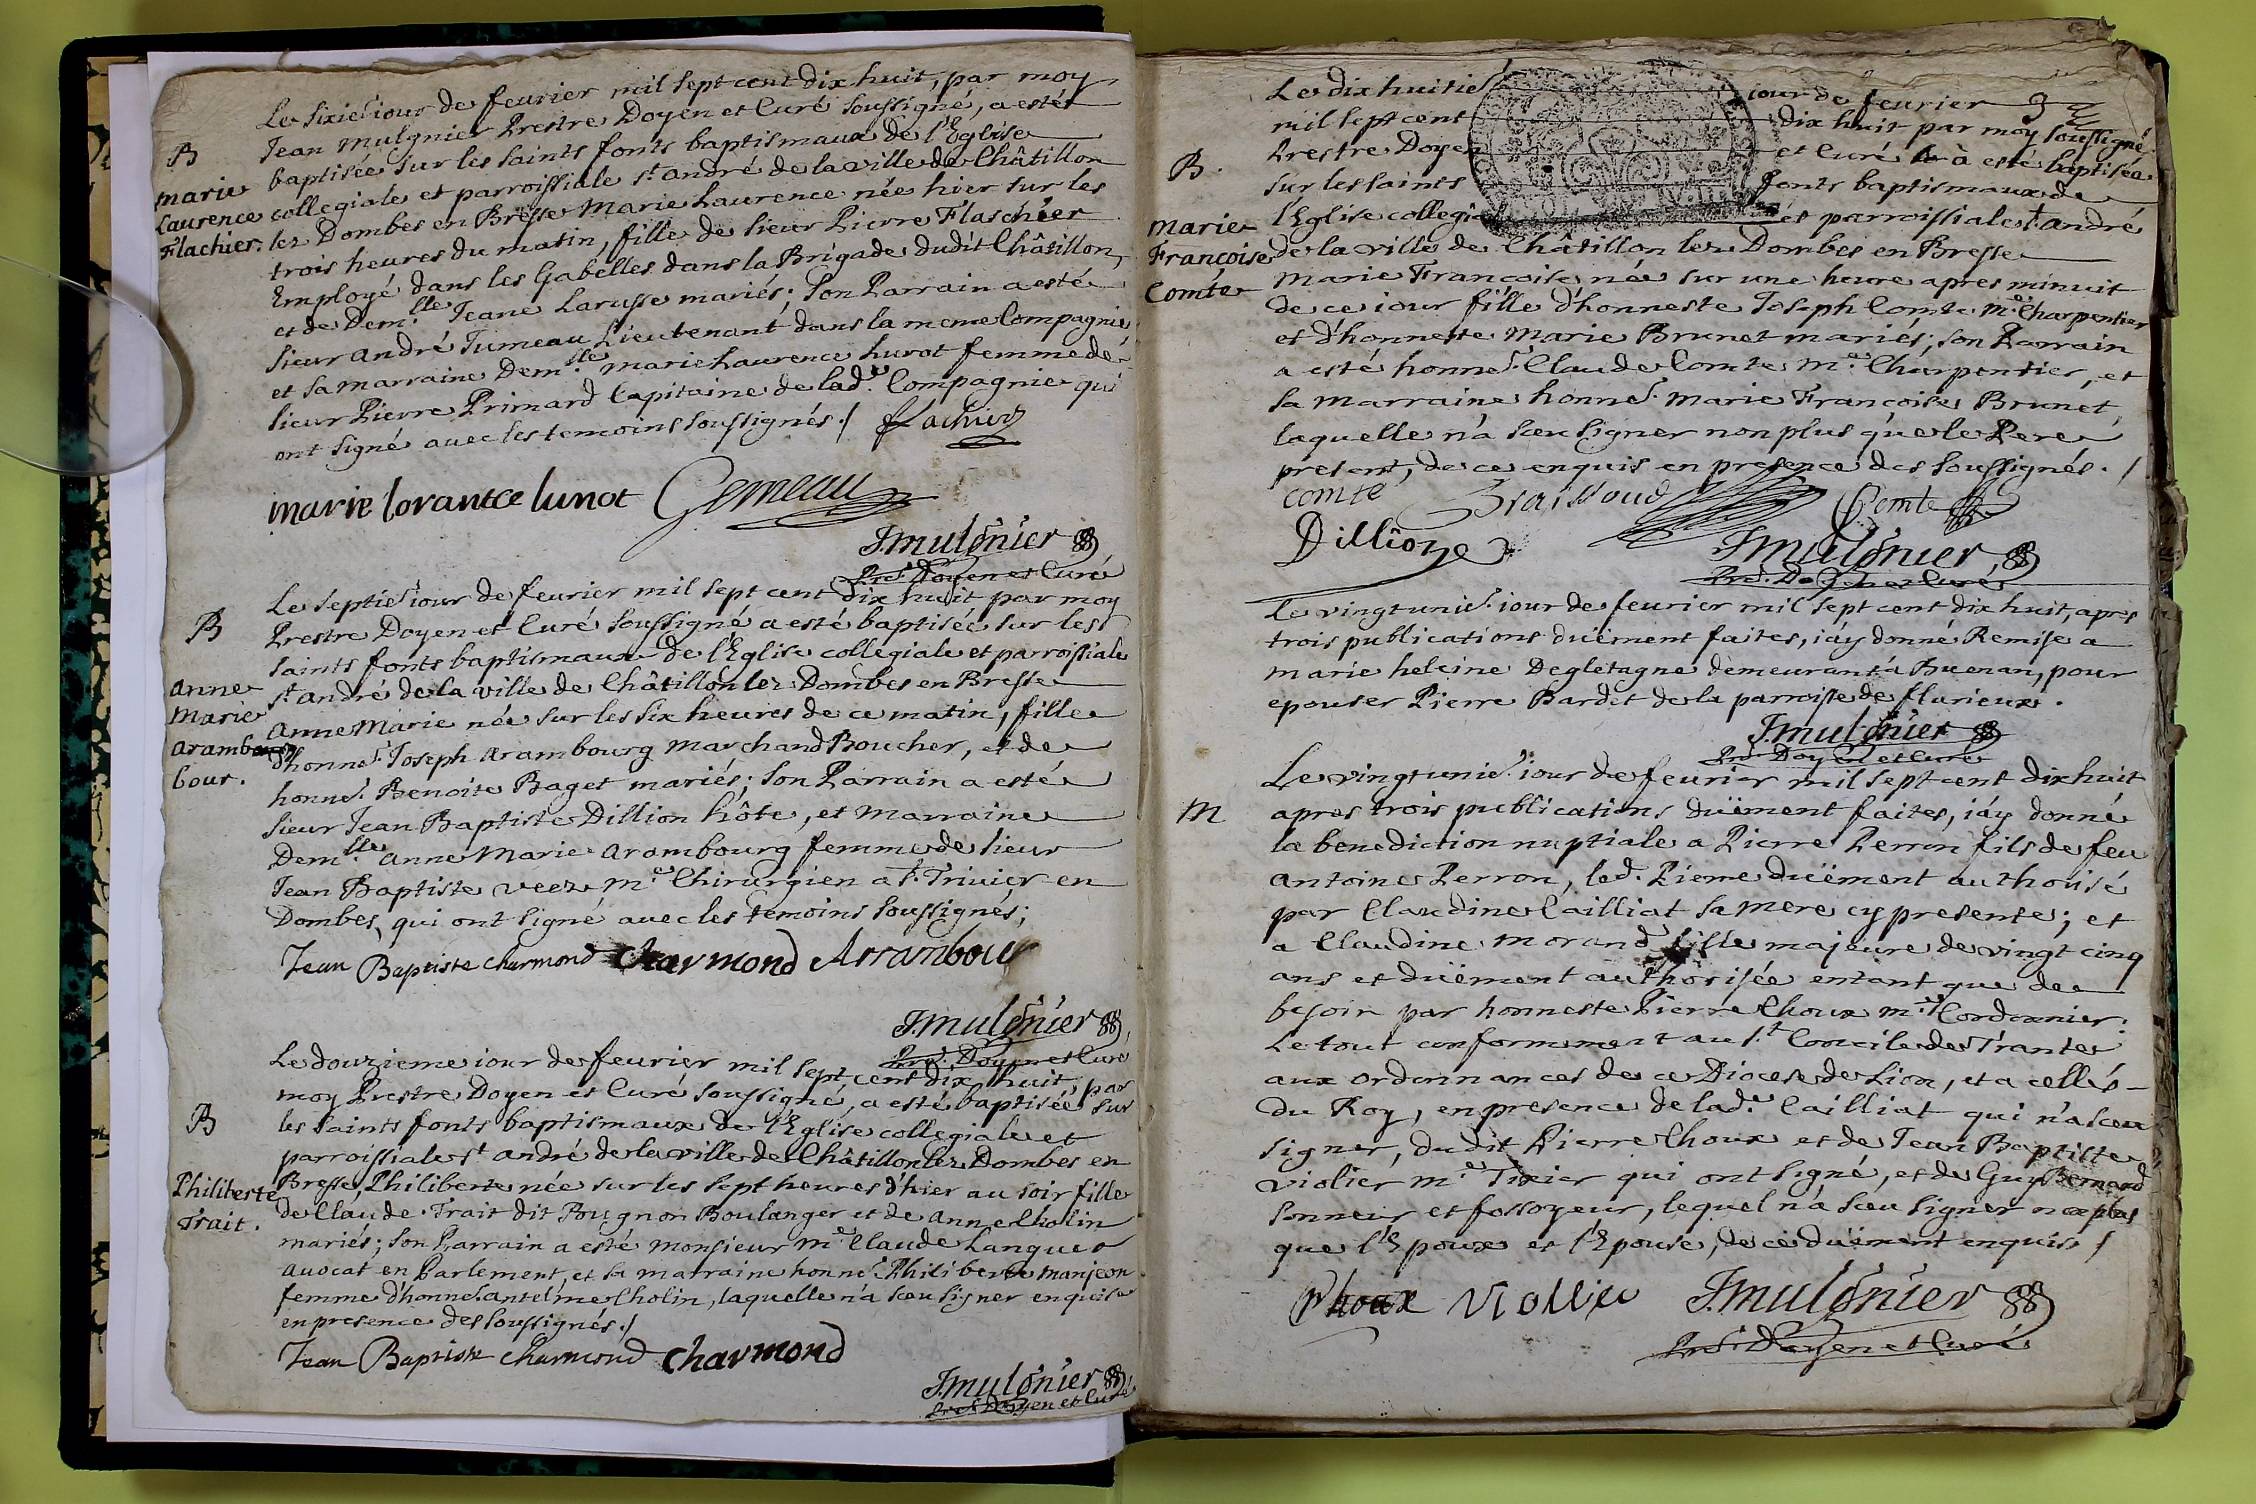 Le Sixie. iour de feurier mil sept cent dix huit, par moy
Jean Mulgnier Prestre Doyen et Curé soussigné, a esté
baptisée sur les saints fonts baptismaux de l'Eglise
collegiale et parroissiale st. andré de la ville de Châtillon
lez Dombes en Bresse Marie Laurence née hier sur les
trois heures du matin, fille de sieur Pierre Flaschier
Employé dans les Gabelles dans la Brigade dudit Châtillon,
et de Dem.lle Jeane Larusse mariés; son Parrain a esté
sieur andré Jumeau Lieutenant dans la meme Compagnie
et sa marraine Dem.lle marie Laurence lunot femme de
sieur Pierre Primard Capitaine de lad.e Compagnie qui
ont signé auec les temoins soussignés ./ flachier
B
marie
Laurence
Flachier.
marie lorantce lunot Gemeau
J. mulgnier
Pre. Doyen et Curé
Le septie. iour de feurier mil sept cent dix huit par moy
Prestre Doyen et Curé soussigné a esté baptisée sur les
saints fonts baptismaux de l'Eglise collegiale et parroissiale
st. andré de la ville de Châtillon lez Dombes en Bresse
anne Marie née sur les six heures de ce matin, fille
d'honne. Joseph arambourg marchand Boucher, et de
honne. Benoite Baget mariés; son Parrain a esté
sieur Jean Baptiste Dillion hôte, et Marraine
Dem.lle anne Marie arambourg femme de sieur
Jean Baptiste veez m.e Chirurgien a st. Trivier en
Dombes, qui ont signé auec les temoins soussignés;
B
anne
Marie
aramb
bour.
Jean Baptiste charmond Charmond Arrambour
J. mulgnier
Pre. Doyen et Curé
Le douzieme iour de feurier mil sept cent dix huit, par
moy Prestre Doyen et Curé soussigné, a esté baptisée sur
les saints fonts baptismaux de l'Eglise collegiale et
parroissiale st andré de la ville de Châtillon lez Dombes en
Bresse, Philiberte née sur les sept heures d'hier au soir fille
de Claude Trait dit Pougnon Boulanger et de anne Cholin
mariés; son Parrain a esté monsieur m.e Claude Langue
auocat en Parlement, et sa marraine honne. Philiberte manjeon
femme d'honne. antelme Cholin, laquelle n'a sceu signer enquise
en presence des soussignés ./
B
Philiberte
Trait.
Jean Baptiste charmond charmond
J. mulgnier
Pre. Doyen et Curé
3
Le dix huitie. iour de feurier
mil sept cent dix huit par moy soussigné
Prestre Doyen et Curé à esté baptisée
sur les saints fonts baptismaux de
l'Eglise collegiale et parroissiale st. andré
de la ville de Châtillon lez Dombes en Bresse
Marie Françoise née sur une heure apres minuit
de ce iour fille d'honneste Joseph Comte m.e Charpentier
et d'honneste Marie Brunet mariés; son Parrain
a esté honne. Claude Comte m.e Charpentier, et
sa marraine honne. Marie Françoise Brunet,
laquelle n'a sceu signer non plus que le Pere
present, de ce enquis en presence des soussignés ./
B.
Marie
Françoise
Comte
comte Comte
Dillion J. mulgnier
Pre. Doyen et Curé
Le vingt unie. iour de feurier mil sept cent dix huit, apres
trois publications düement faites, i'ay donné Remise a
marie heleine Degletagne demeurant a Buenan, pour
epouser Pierre Bardet de la parroisse de flurieux .
J. mulgnier
Pre. Doyen et Curé
Le vingt unie. iour de feurier mil sept cent dix huit
apres trois publications düement faites, i'ay donné
la benediction nuptiale a Pierre Perron fils de feu
antoine Perron, led. Pierre düement authorisé
par Claudine Cailliat sa mere cy presente; et
a Claudine Morand fille majeure de vingt cinq
ans et düement authorisée entant que de
besoin par honneste Pierre Choux m.e Cordonnier;
Le tout conformement au st. Concile de Trante
aux ordonnances de ce Diocese de Lion, et a celles
du Roy, en presence de lad.e Cailliat qui n'a sceu
signer, dudit Pierre Choux et de Jean Baptiste
violier m.e Tixier qui ont signé, et de Guy Bernard
sonneur et fossoyeur, lequel n'a sceu signer non plus
que l'Epoux et l'Epouse, de ce düement enquis /
M
Choux Violier J. mulgnier
Pre. Doyen et Curé